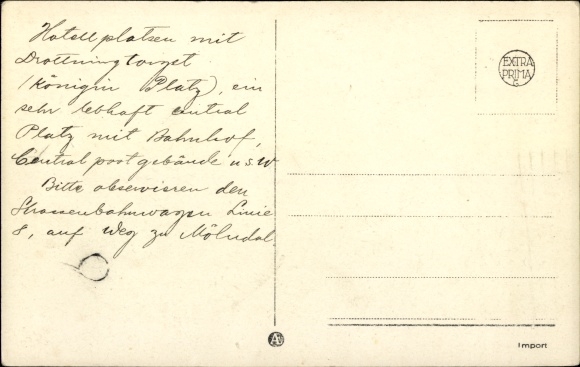 Hotellplatsen mit
Drottningtorget
(Königin Platz), ein
sehr lebhaft central
Platz mit Bahnhof,
Central postgebäude u.s.w
Bitte observieren den
Strassenbahnwagen Linie
8, auf Weg zu Mölndal
EXTRA
PRIMA
G
A
Import